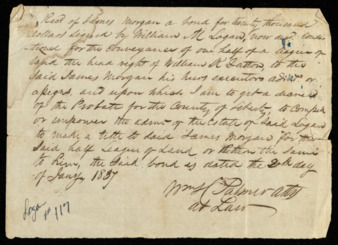 Recd of James Morgan a bond for Seventy thousand
dollars signed by William M. Logan, now and condi
tioned for the Conveyance of one half of a league of
land the head right of William R. Dalton, to the
said James Morgan his heirs executors admr or
assigns, and upon which I am to get a decree
of the Probate for the County of to Compel
or empower the admr of the Estate of Said Logan
to make a title to said James Morgan for
Said half League of Land or the Same
to Run, the Said bond is dated the day
of Jany 1837
Wm Palmer atty
at Law
No 117